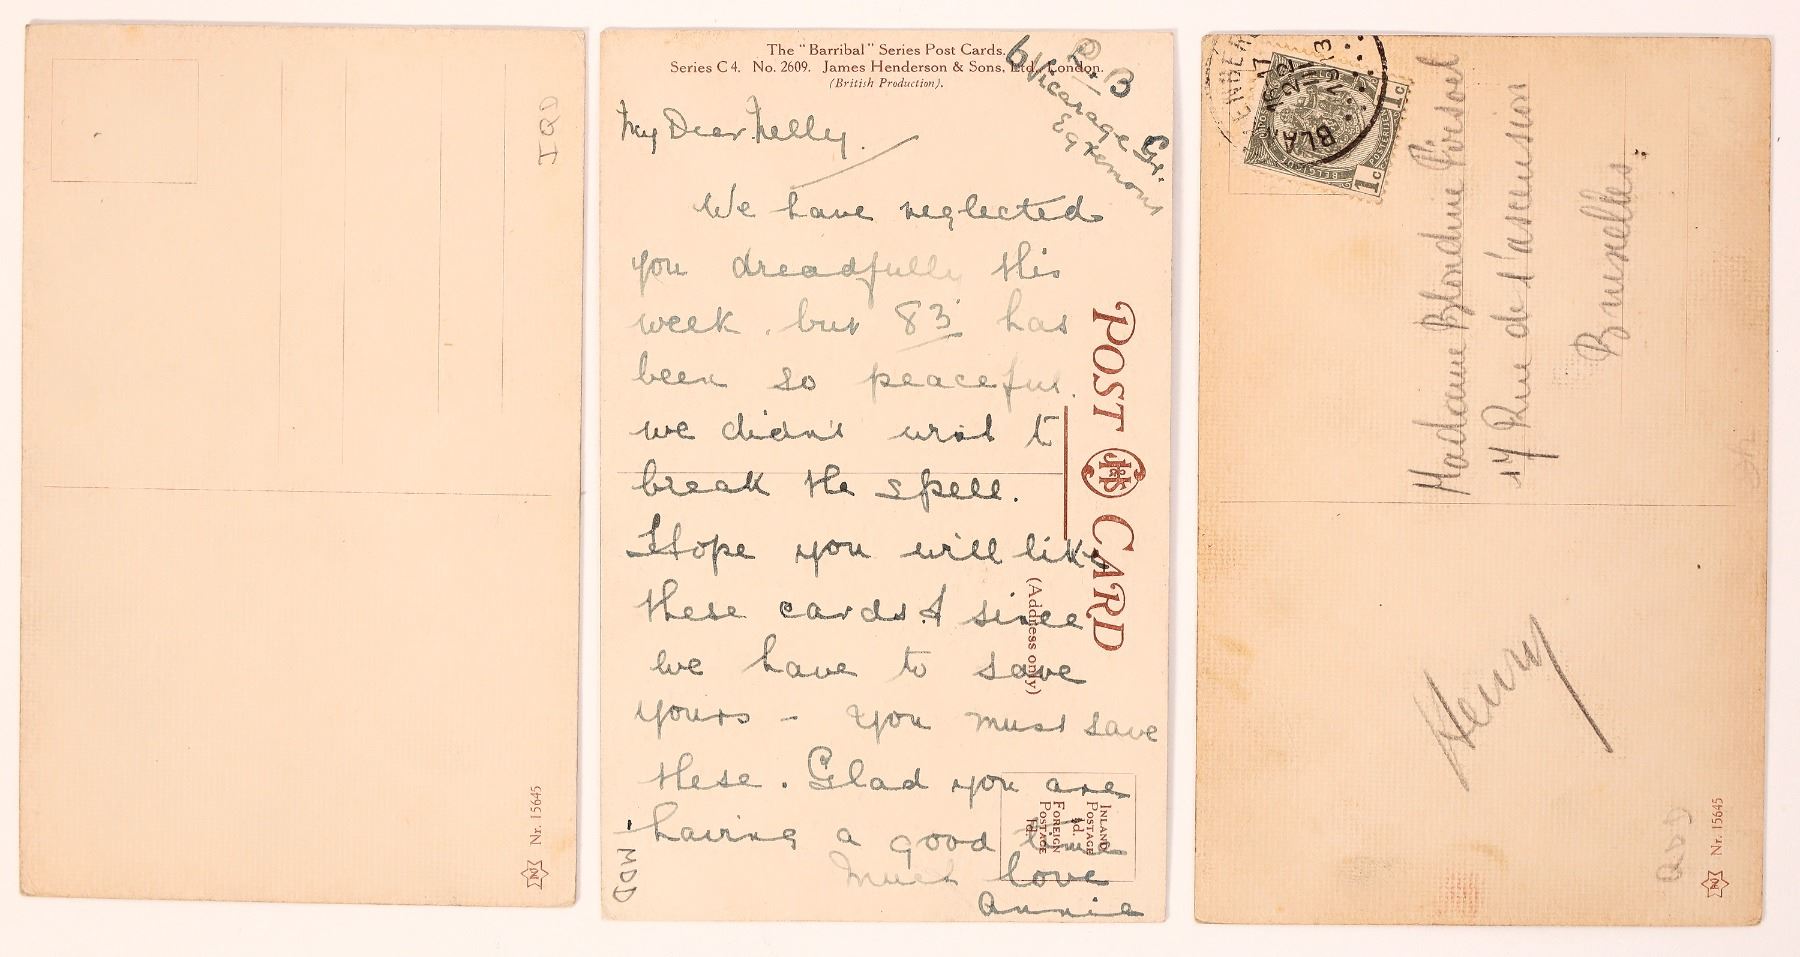 IQD
Nr. 15645
The "Barribal" Series Post Cards.
Series C 4. No. 2609. James Henderson & Sons, Ltd., London.
(British Production).
R.B
6 Vicarage Gr.
Egremont
My Dear Nelly.
We have neglected
you dreadfully this
week, but 83 has
been so peaceful.
we didn't want to
break the spell.
Hope you will like
these cards & since
we have to save
yours - you must save
these. Glad you are
having a good time
Much love
Annie
MDD
POST CARD
JH&S
(Address only)
INLAND
POSTAGE
½d.
FOREIGN
POSTAGE
1d.
BLA
1c
1c
BELGIQUE
POSTERIJEN
Madame Blondine
17 Rue de l'ascension
Bruxelles
Henry
QDD
Nr. 15645